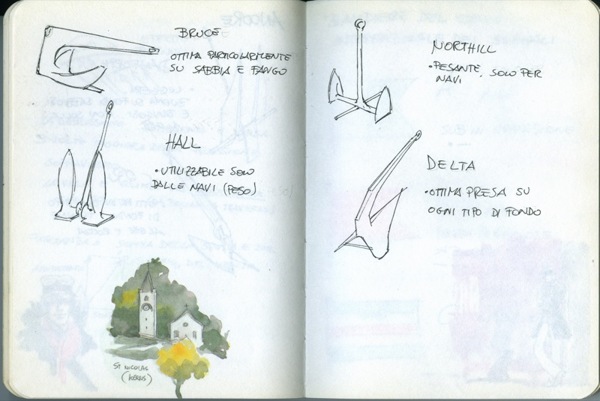 BRUCE
OTTIMA PARTICOLARMENTE
SU SABBIA E FANGO
HALL
• UTILIZZABILE SOLO
DALLE NAVI (PESO)
ST NICOLAS
NORTHILL
• PESANTE, SOLO PER
NAVI
DELTA
• OTTIMA PRESA SU
OGNI TIPO DI FONDO